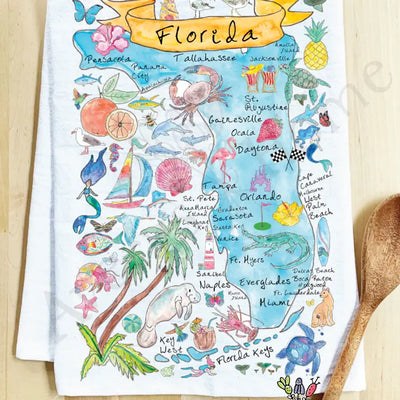 Florida
Pensacola
Tallahassee
Jacksonville
Amelia
Island
Panama
City
St.
Augustine
Gainesville
Ocala
Daytona
Cape
Canaveral
Melbourne
West
Palm
Beach
Tampa
Orlando
St. Pete
Anna Maria
Island
Longboat
Key
Bradenton
Sarasota
Siesta Key
Venice
Ft. Myers
Sanibel
Naples
Island
Everglades
Miami
Delray Beach
Boca Raton
Hollywood
Ft. Lauderdale
Key
West
Florida Keys